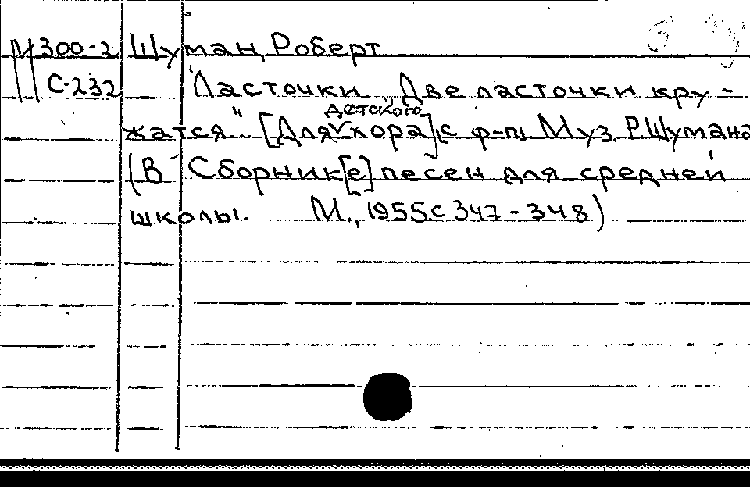 М300-2 Шуман, Роберт
С-232 Ласточки. „Две ласточки кру-
жатся". [Для детского хора] с ф-п. Муз. Р. Шумана
(В Сборник[е] песен для средней
школы. М., 1955 с 347-348)